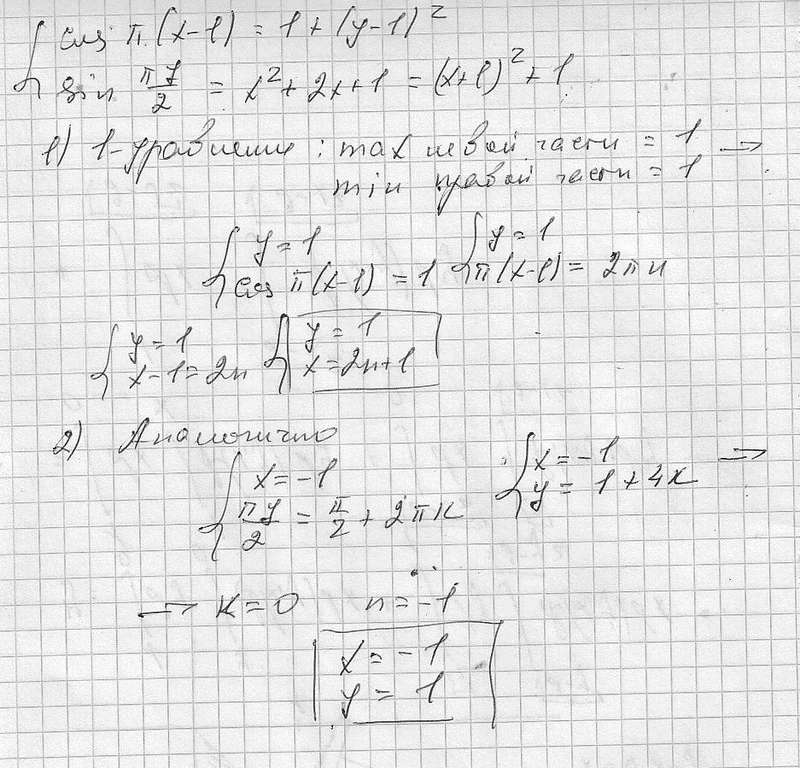 cos π(x-1) = 1 + (y-1)²
sin πy/2 = x² + 2x + 1 = (x+1)² + 1
1) 1-уравнение: max левой части = 1 →
min правой части = 1
{ y = 1 { y = 1
cos π(x-1) = 1 π(x-1) = 2πn
{ y = 1 { y = 1
x-1 = 2n x = 2n+1
2) Аналогично
{ x = -1 { x = -1 →
πy/2 = π/2 + 2πk y = 1 + 4k
→ k = 0 n = -1
x = -1
y = 1